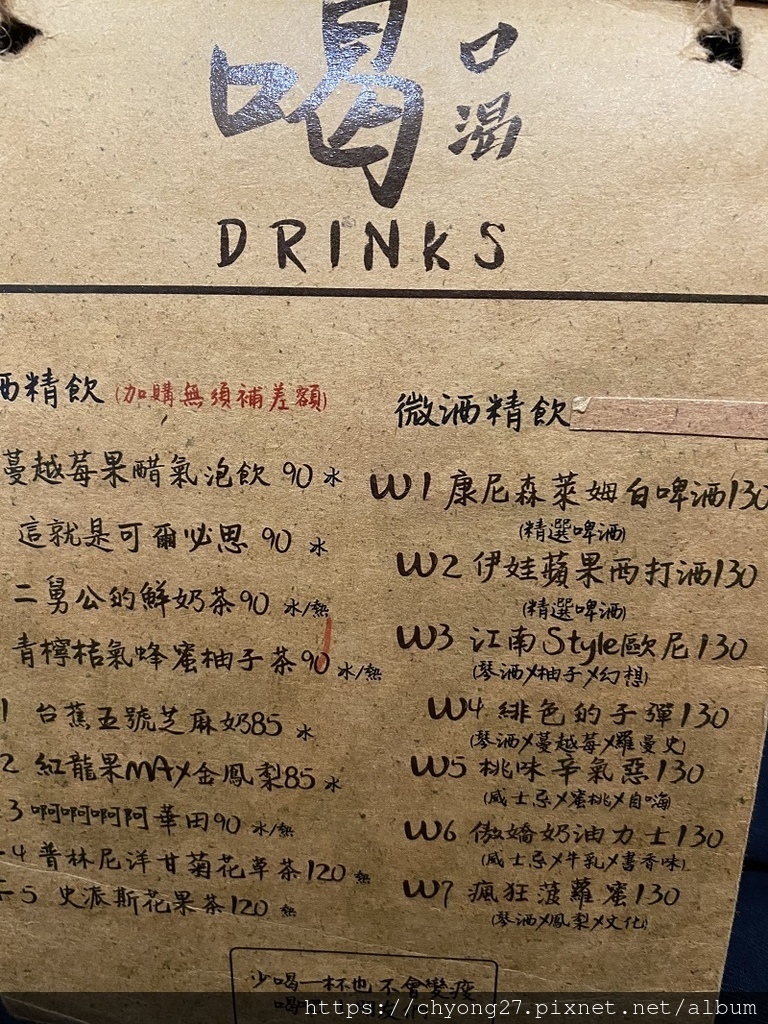 喝
口渴
DRINKS
酒精飲 (加購無須補差額)
蔓越莓果醋氣泡飲 90 冰
這就是可爾必思 90 冰
二舅公的鮮奶茶90 冰/熱
青檸桔氣蜂蜜柚子茶90 冰/熱
1 台蕉五號芝麻奶85 冰
2 紅龍果MAX金鳳梨85 冰
3 啊啊啊阿華田90 冰/熱
4 普林尼洋甘菊花草茶120 熱
5 史派斯花果茶120 熱
微酒精飲
W1 康尼森萊姆白啤酒130
(精選啤酒)
W2 伊娃蘋果西打酒130
(精選啤酒)
W3 江南Style歐尼130
(琴酒X柚子X幻想)
W4 緋色的子彈130
(琴酒X蔓越莓X羅曼史)
W5 桃味辛氣惡130
(威士忌X蜜桃X自嗨)
W6 傲嬌奶油力士130
(威士忌X牛乳X書香味)
W7 瘋狂菠蘿蜜130
(琴酒X鳳梨X文化)
少喝一杯也不會變瘦
喝
https://chyong27.pixnet.net/album